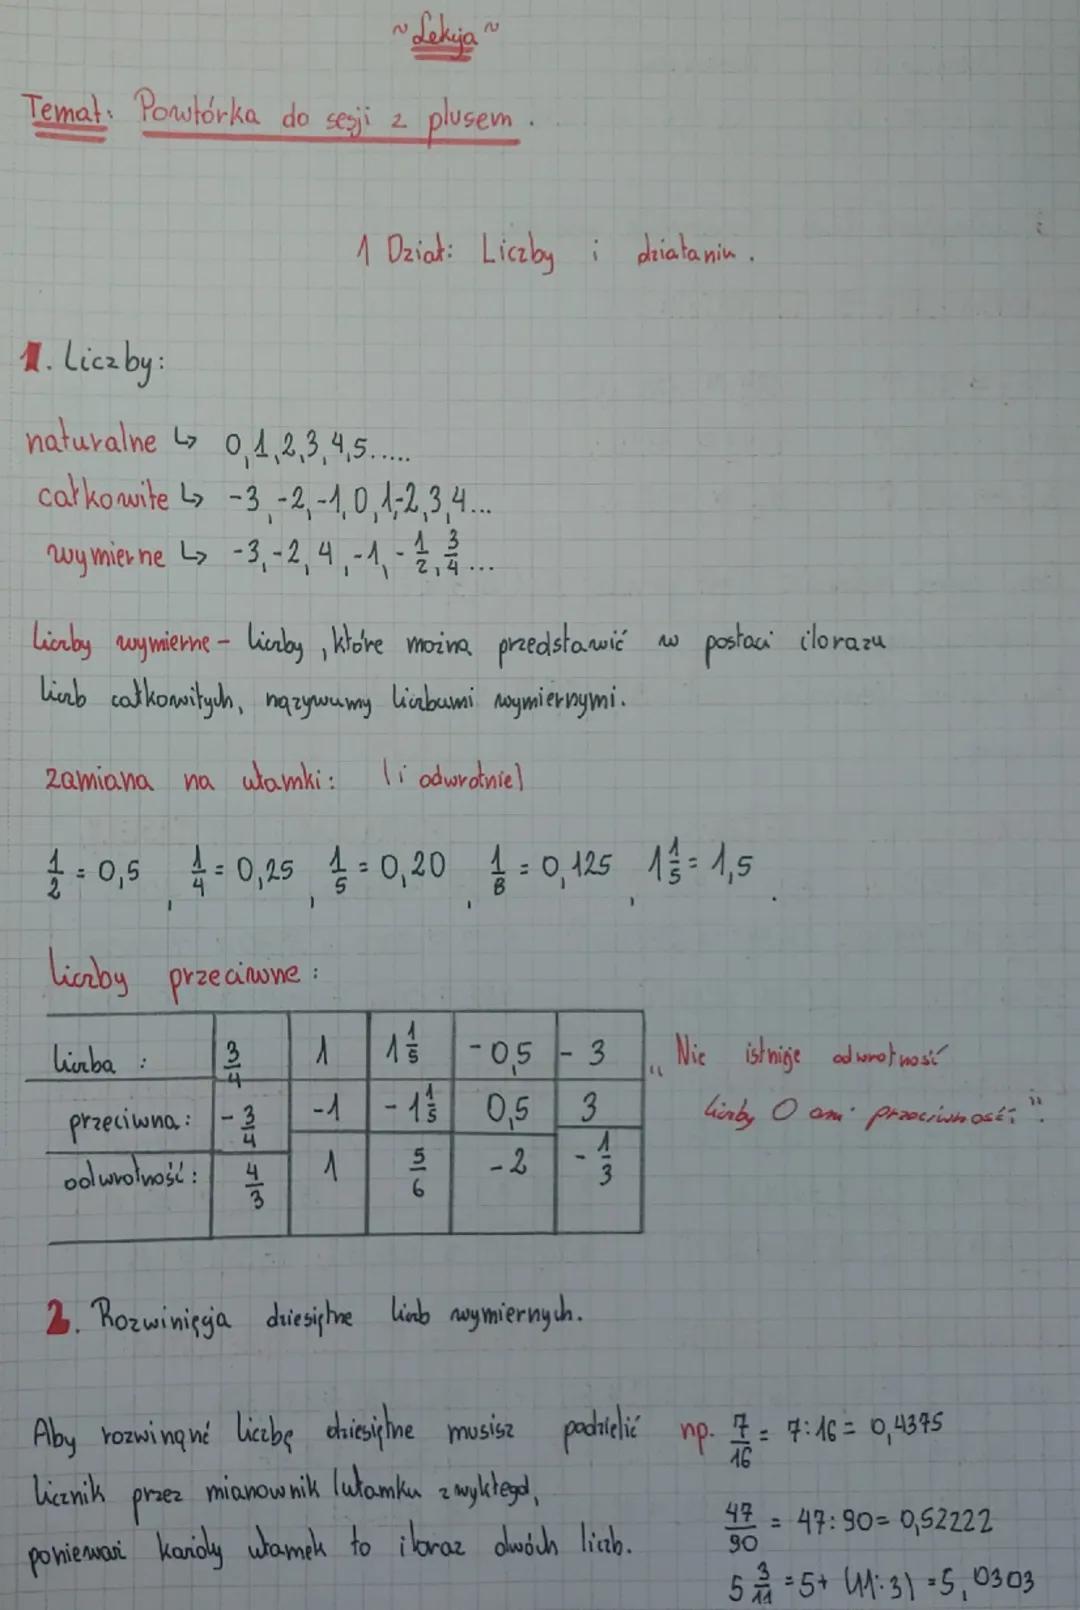 ~ Lekcja ~
Temat: Powtórka do sesji z plusem.
1 Dział: Liczby i działania.
1. Liczby:
naturalne ↳ 0,1,2,3,4,5.....
całkowite ↳ -3,-2,-1,0,1,-2,3,4...
wymierne ↳ -3,-2,4,-1,-1/2,3/4...
liczby wymierne - liczby, które można przedstawić w postaci ilorazu
liczb całkowitych, nazywamy liczbami wymiernymi.
zamiana na ułamki: (i odwrotnie)
1/2 = 0,5, 1/4 = 0,25, 1/5 = 0,20, 1/8 = 0,125, 1 1/5 = 1,5.
liczby przeciwne:
liczba: 3/4 1 1 1/5 -0,5 -3
przeciwna: -3/4 -1 -1 1/5 0,5 3
odwrotność: 4/3 1 5/6 -2 -1/3
„Nie istnieje odwrotność
liczby 0 ani przeciwność".
2. Rozwinięcja dziesiętne liczb wymiernych.
Aby rozwinąnć liczbę dziesiętne musisz podzielić
licznik przez mianownik (ułamku zwykłego),
ponieważ każdy ułamek to iloraz dwóch liczb.
np. 7/16 = 7:16 = 0,4375
47/90 = 47:90 = 0,52222
5 3/11 = 5+ (11:3) = 5,0303